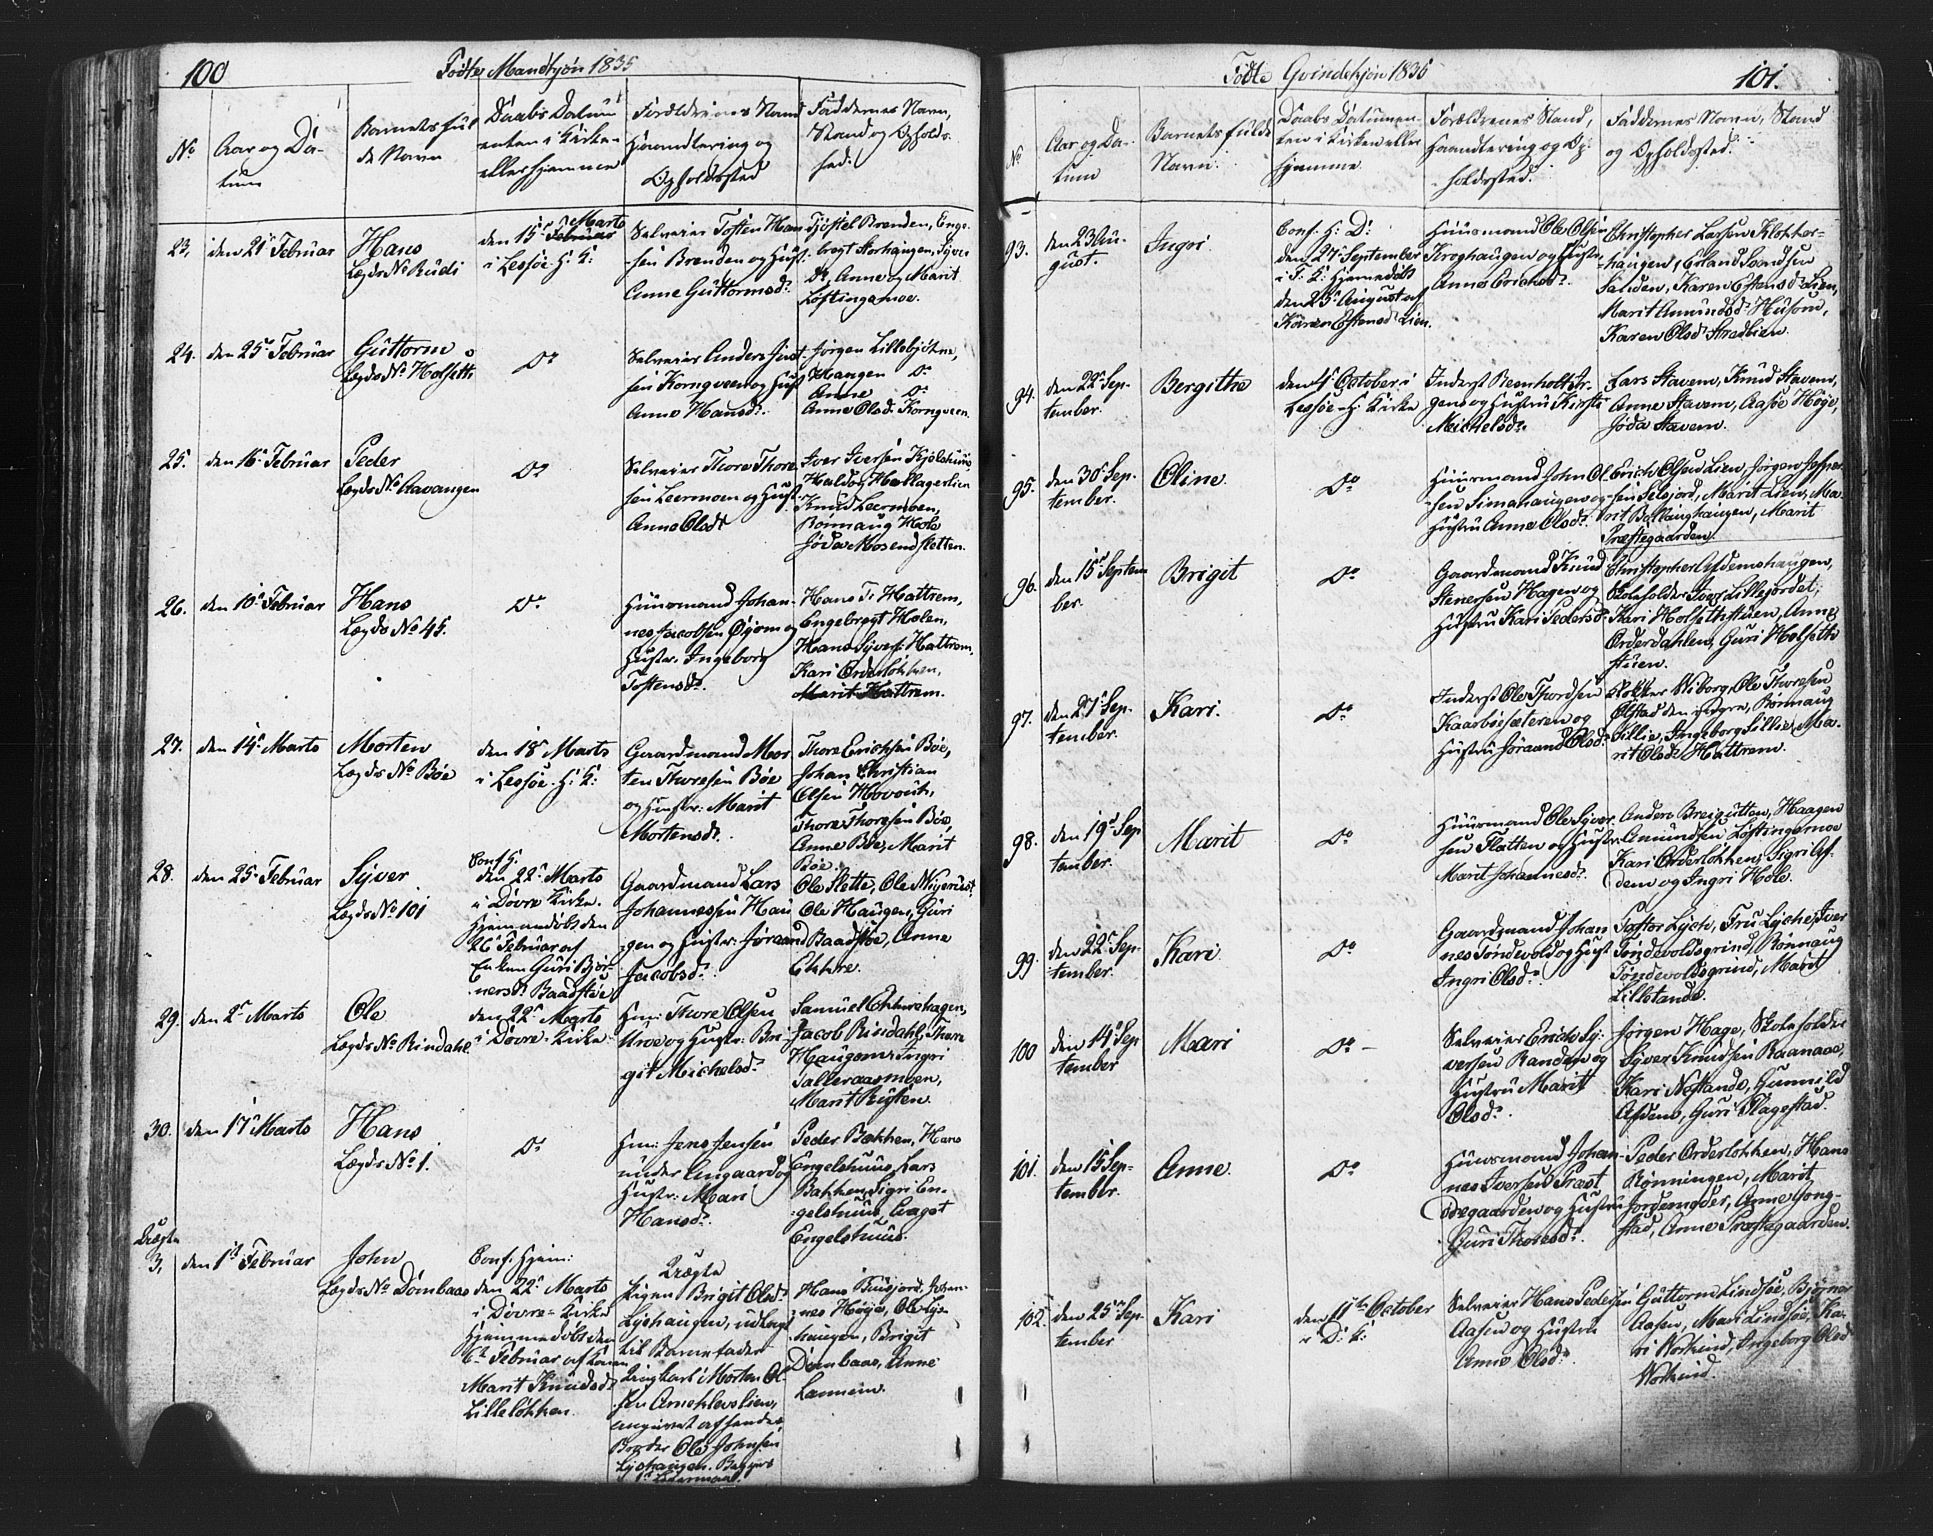 100
Födte Mandkjön 1835
No
Aar og Da-
tum
Barnets ful
de Navn
Daabs Datum
enten i Kirke-
eller hjemme
Forældrenes Stand
Haandtering og
Opholdssted
Faddernes Navn,
Stand og Opholds-
sted.
23, den 21de Februar
Hans
Lægds No Rudi
den 15de Marts
i Lessöe H: K:
Selveier Tosten Han
sen Brenden og Hust.
Anne Guttormsd:
Tjöstel Brenden, Enge-
bregt Storhaugen, Syver
Do, Anne og Marit
Löftingsmoe.
24. den 25de Februar
Guttorm
Lægds No Holseth
Do
Selveier Anders Just-
sen Kornqveen og Hust
Anne Hansd:
Jörgen Lillehjelme,
Haagen Do
Anne Do
Anne Olsd: Kornqveen.
25. den 16de Februar
Peder
Lægds No Aavangen
Do
Selveier Thore Thore
sen Leermoen og Hust.
Anne Olsdt
Iver Iversen Kjelshuus,
Haldor Hallagerlien
Knud Leermoen,
Rönnaug Hole
Jöda Mosendsletten.
26. den 10de Februar
Hans
Lægds No 45.
Do
Huusmand Johan-
nes Jacobsen Öyom og
Hustr. Ingeborg
Tostensd:
Hans T: Hattrem,
Engebregt Holen,
Hans Syvers: Hattrem,
Kari Orderlökken,
Marit Hattrem.
27. den 14de Marts
Morten
Lægds No Böe
den 18de Marts
i Lessöe H: K:
Gaardmand Mor
ten Thoresen Böe
og Hustr: Marit
Mortensd:
Thore Erichsen Böe,
Johan Christian
Olsen
Thore Thoresen Böe
Anne Böe, Marit
Böe.
28. den 25de Februar
Syver
Lægds No 101
Conf. H.
den 22de Marts
i Dovre Kirke.
Hjemmedöbt den
26de Februar af
Enken Guri Björ-
nersd: Baadstöe
Gaardmand Lars
Johannessen Hau
gen og Hustr: Jöraand
Jacobsd:
Ole Slette, Ole
Ole Haugen, Guri
Baadstöe, Anne
Ekkre.
29. den 2de Marts
Ole
Lægds No Rindahl
den 22de Marts
i Dovre Kirke
Hm: Thore Olsen
Urve og Hustr: Bri-
git Michelsd:
Samuel Ekkrehagen,
Jacob Rindahl, Thore
Haugom, Ingri
Talleraasmoen,
Marit Rusten.
30. den 17de Marts
Hans
Lægds No 1.
Do
Hm: Jens Jensen
under Angaard og
Hustr: Mari
Hansd:
Peder Bakken, Hans
Engelshuus, Lars
Bakken, Sigri En-
gelshuus, Aagot
Engelshuus.
Uægte
3, den 1ste Februar
John
Lægds No Dombaas
Conf. Hjem:
den 22de Marts
i Dovre Kirke
Hjemmedöbt den
6te Februar af Konen
Marit Knudsd:
Lillelökken.
Uægte
Pigen Brigit Olsd:
Lyshaugen, udlagt
til Barnefader
Ungkarl Morten Ol-
sen Arnekleivslien,
angivet af hendes
Broder Ole Johnsen
Lyshaugen. Begges
Hans Busjord, Johan-
nes Höye, Ole Lys-
haugen, Brigit
Dombaas, Anne
Lannem.
Födte Qvindekjön 1835
101.
No
Aar og Da-
tum
Barnets fulde
Navn.
Daabs Datum en-
ten i Kirken eller
hjemme
Forældrenes Stand,
Haandtering og Op-
holdssted.
Faddernes Navn, Stand
og Opholdssted.
93. den 23 Au-
gust.
Ingri
Conf. H: D:
den 27de September
i D: K: Hjemmedöbt
den 23de August af
Karen Estensd: Lien.
Huusmand Ole Olsen
Kroghaugen og Hustr
Anne Erichsd:
Christopher Larsen Klokker-
haugen, Erland Svendsen
Sanden, Karen Estensd: Lien,
Marit Amundsd: Husom,
Karen Olsd: Stredbien.
94. den 22de Sep-
tember.
Bergithe
den 4de October i
Lessöe H. Kirke
Inderst Remholt Jör
gens og Hustru Kirsti
Michelsd:
Lars Stavem, Knud Stavem,
Anne Stavem, Aasöe Höye,
Jöda Stavem.
95. den 30te Sep-
tember.
Oline
Do
Huusmand John Ol
sen Simahaugen og
Hustru Anne Olsd:
Erich Olsen Lien, Jörgen Jesper
sen Selsjord, Marit Lien, Ma-
rit Ballinghaugen, Marit
Præstegaarden.
96. den 15de Septem
ber.
Brigit
Do
Gaardmand Knud
Stenersen Hagen og
Hustru Kari Pedersd:
Christopher Afdemshaugen,
Skoleholder Iver Lillejordet,
Kari Holsethstuen, Anne
Orderdahlen, Guri Holseth-
stuen.
97. den 27de Sep-
tember.
Kari.
Do
Inderst Ole Thordsen
Kaarbösæteren og
Hustru Jöraand Olsd:
Klokker Wiborg, Ole Thoresen
Ölstad den yngre, Rönnaug
Lillie, Ingeborg Lillie, Ma-
rit Olsd: Hattrem.
98. den 19de Sep
tember.
Marit
Do
Huusmand Ole Syver
sen Flatten og Hustr
Marit Johannesd:
Anders Breiqutten, Haagen
Amundsen Löftingsmoe
Kari Orderlökken, Sigri Af-
dem og Ingri Hole.
99. den 22de Sep-
tember.
Kari
Do
Gaardmand Johan
nes Töndevold og Hust
Ingri Olsd:
Pastor Lysch, Fru Lysche, Iver
Töndevoldsgrind, Rönnaug
Töndevoldsgrind, Marit
Lillstande.
100 den 14de Sep
tember
Mari
Do
Selveier Erich Sy-
versen Randen og
Hustru Marit
Olsd:
Jörgen Hage, Skoleholder
Syver Knudsen Raanaae,
Kari Nostande, Gunnild
Afdem, Guri Slagestad.
101. den 15 Sep-
tember.
Anne
Do
Huusmand Johan-
nes Iversen Præst
egaarden og Hustru
Guri Thoresd:
Peder Orderlökken, Hans
Rönningen, Marit
Jordemoder, Anne Jong-
stad, Anne Præstegaarden.
102. den 25de Sep-
tember
Kari
den 11te October
i D: K:
Selveier Hans Pedersen
Aasen og Hustru
Anne Olsd:
Guttorm Lindsöe, Björner
Aasen, Mari Lindsöe, Ka-
ri Norkind, Ingeborg Olsd
Norkind.